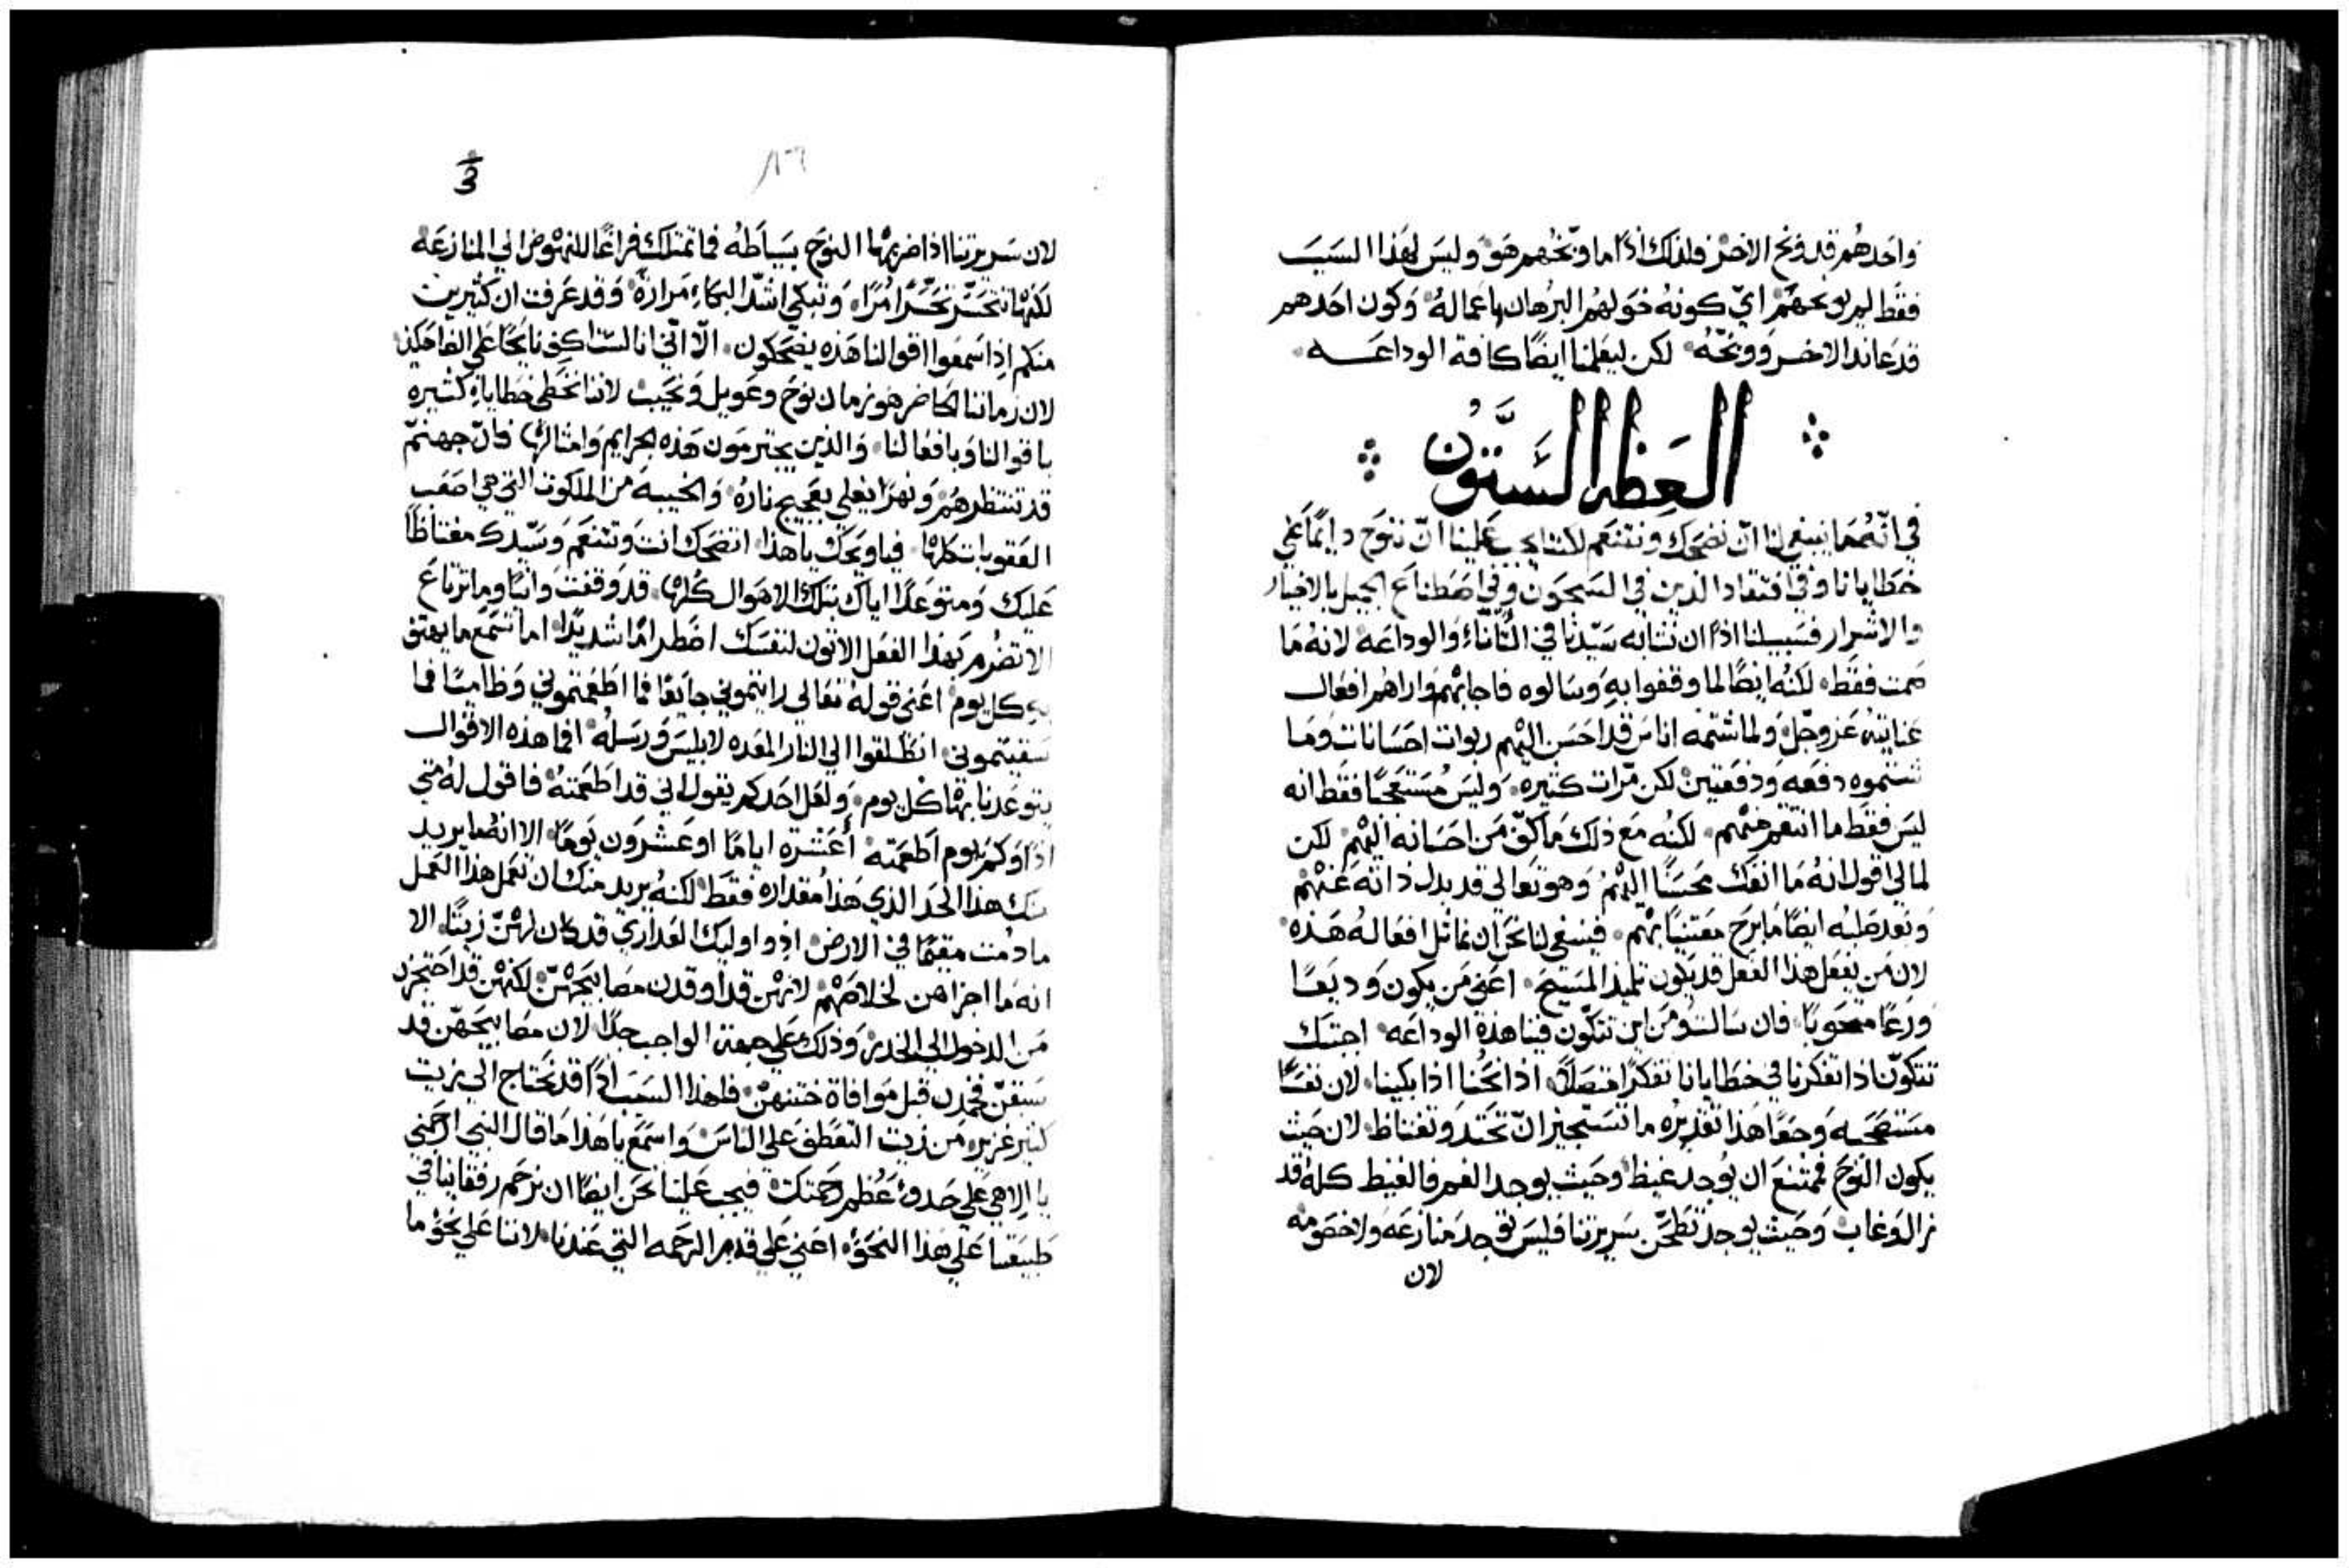 واحدهم قد وبخ الاخر فلذلك اذًا ما وبّخهم هو وليس لهذا السبب
فقط لم يوبخهم اي كونه خولهم البرهان باعماله وكون احدهم
قد عاند الاخر ووبّخه لكن ليعلمنا ايضًا كافة الوداعه
العظه الستون
في انّه ما ينبغي لنا انّ نضحك ونتنعم لكننا يجب علينا انّ ننوح دايمًا علي
خطايانا وفي افتقاد الذين في السجون وفي اصطناع الجميل بالاخيار
والاشرار فسبيلنا اذًا ان نشابه سيّدنا في التأناء والوداعه لانه ما
صمت فقط لكنه ايضًا لما وقفوا به وسالوه فاجابهم واراهم افعال
عنايته عز وجلّ ولما شتمه اناس قد احسن اليهم ربوات احسانات وما
شتموه دفعه ودفعتين لكن مرّات كثيره وليس مستعجبًا فقط انه
ليس فقط ما انتقم منهم لكنه مع ذلك ما كفّ من احسانه اليهم لكن
لمالي اقول انه ما انفك محسنًا اليهم وهو تعالي قد بدل ذاته عنهم
وبعد صلبه ايضًا ما برح معتنيًا بهم فينبغي لنا نحن ان نماثل افعاله هذه
لان من يفعل هذا الفعل قد يكون تلميذ المسيح اعني من يكون وديعًا
ورعًا فان سالت ومن اين تتكوّن فينا هذه الوداعه اجبتك
تتكوّن اذا تفكرنا في خطايانا تفكرًا متصلاً اذا نحُنا اذا بكينا لان نفسًا
وجعًا هذا تقديره ما تستجيز انّ تحتد وتغتاظ لان حيث
يكون النوح فممتنع ان يوجد غيظ وحيث يوجد الغم فالغيظ كله قد
زال وغاب وحيث يوجد تطحّن سريرتنا فليس توجد منازعه ولا خصومه
لان
١٣٦
لان سريرتنا اذا ضربها النوح بسياطه فما تمتلك فراغًا للنهوض الي المنازعه
لكنها تتحسّر تحسّرًا مُرًا وتبكي اشدّ البكاء مرارة وقد عرفت ان كثيرين
منكم اذا سمعوا اقوالنا هذه يضحكون الّا انّي انا لست اكف نايحًا علي الضاحكين
لان زماننا الحاضر هو زمان نوح وعويل ونحيب لاننا نخطي خطايا كثيره
باقوالنا وبافعالنا والذين يجترمون هذه الجرايم وامثالها فان جهنّم
قد تنتظرهم ونهرًا يغلي بعجيج ناره والخيبه من الملكوت التي هي اصعب
العقوبات كلها فيا ويحك يا هذا اتضحك انت وتتنعم وسيّدك مغتاظًا
عليك ومتوعدًا اياك بتلك الاهوال كلها قد وقفت وانيًا وما ترتاع
الا تضرم بهذا الفعل الاتون لنفسك اضطرامًا شديدًا اما تسمع ما يهتف
به كل يوم اعني قوله تعالي رايتموني جايعًا فما اطعمتموني وظاميًا فما
سقيتموني انطلقوا الي النار المعده لابليس ورسله افما هذه الاقوال
يتوعدنا بها كل يوم ولعل احدكم يقول اني قد اطعمته فاقول له متي
اذًا وكم يوم اطعمته أعشرة ايامًا او عشرون يومًا الا انه ما يريد
منك هذا الحد الذي هذا مقداره فقط لكنه يريد منك ان تعمل هذا العمل
ما دمت مقيمًا في الارض اذ واوليك العذاري قد كان لهنّ زيتًا الا
انه ما اجزاهن لخلاصهم لانهن قد اوقدن مصابيحهنّ لكنهن قد احتجزن
من الدخول الي الخدر وذلك علي جهة الواجب جدًا لان مصابيحهّن قد
سبقنّ فخمدن قبل موافاة ختنهنّ فلهذا السبب اذًا قد نحتاج الي زيت
كثير غزير من زيت التعطف علي الناس واسمع يا هذا ما قال النبي ارحمني
يا الاهي علي حدو عُظم رحمتك فيجب علينا نحن ايضًا ان نرحم رفقاينا في
طبيعتنا علي هذا النحو اعني علي قدر الرحمه التي عندنا لاننا علي نحو ما